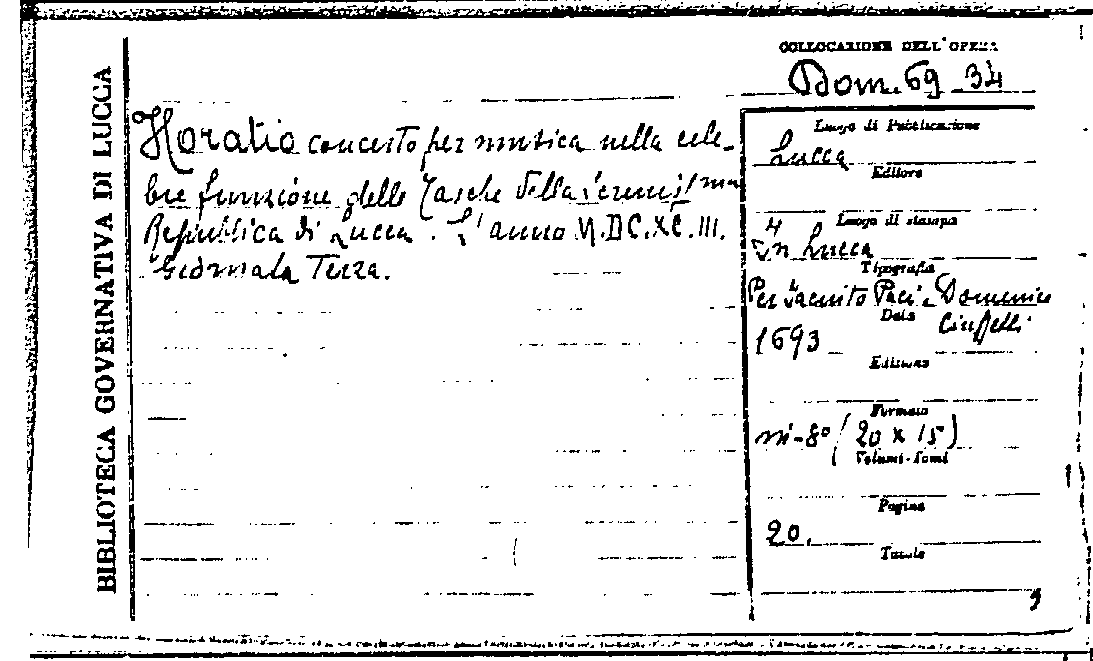 BIBLIOTECA GOVERNATIVA DI LUCCA
COLLOCAZIONE DELL'OPERA
Dom. 69 34
Horatio concerto per musica nella cele-
bre funzione delle Tasche della Serenissma
Repubblica di Lucca. L'anno M.DC.XC.III.
Giornata Terza.
Luogo di Pubblicazione
Lucca
Editore
Luogo di stampa
In Lucca
Tipografia
Per Jacinto Paci e Domenico
Ciuffetti
Data
1693
Edizione
Formato
in-8° (20 x 15)
Volumi-Tomi
Pagine
20.
Tavole